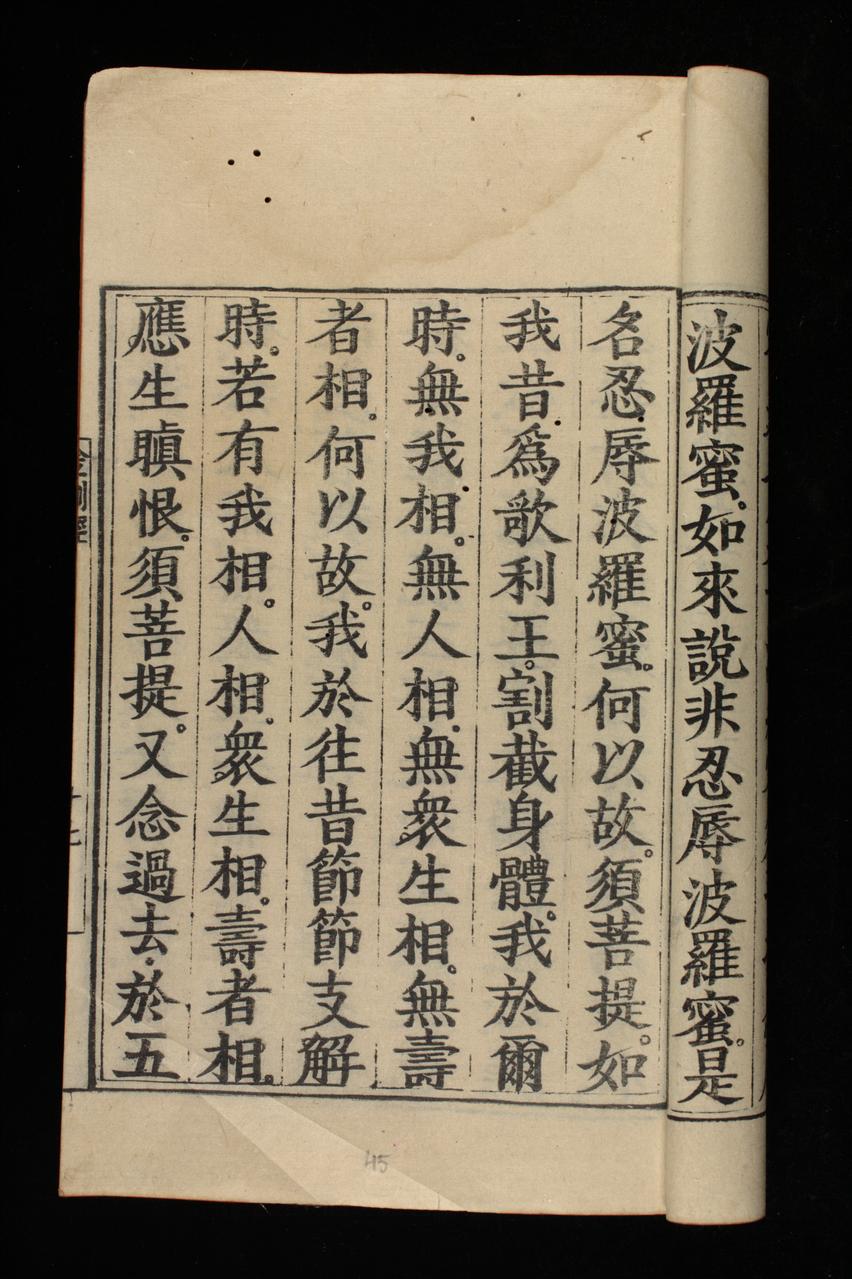 波羅蜜。如來說非忍辱波羅蜜。是
名忍辱波羅蜜。何以故。須菩提。如
我昔爲歌利王。割截身體。我於爾
時。無我相。無人相。無衆生相。無壽
者相。何以故。我於往昔節節支解
時。若有我相。人相。衆生相。壽者相。
應生瞋恨。須菩提。又念過去。於五
金剛經
45